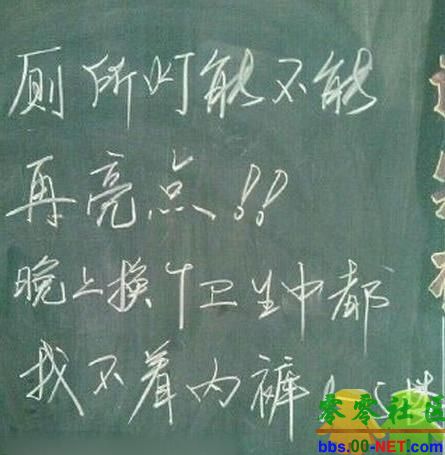 厕所灯能不能
再亮点!!
晚上换个卫生巾都
找不着内裤
零零社区
bbs.00-NET.com